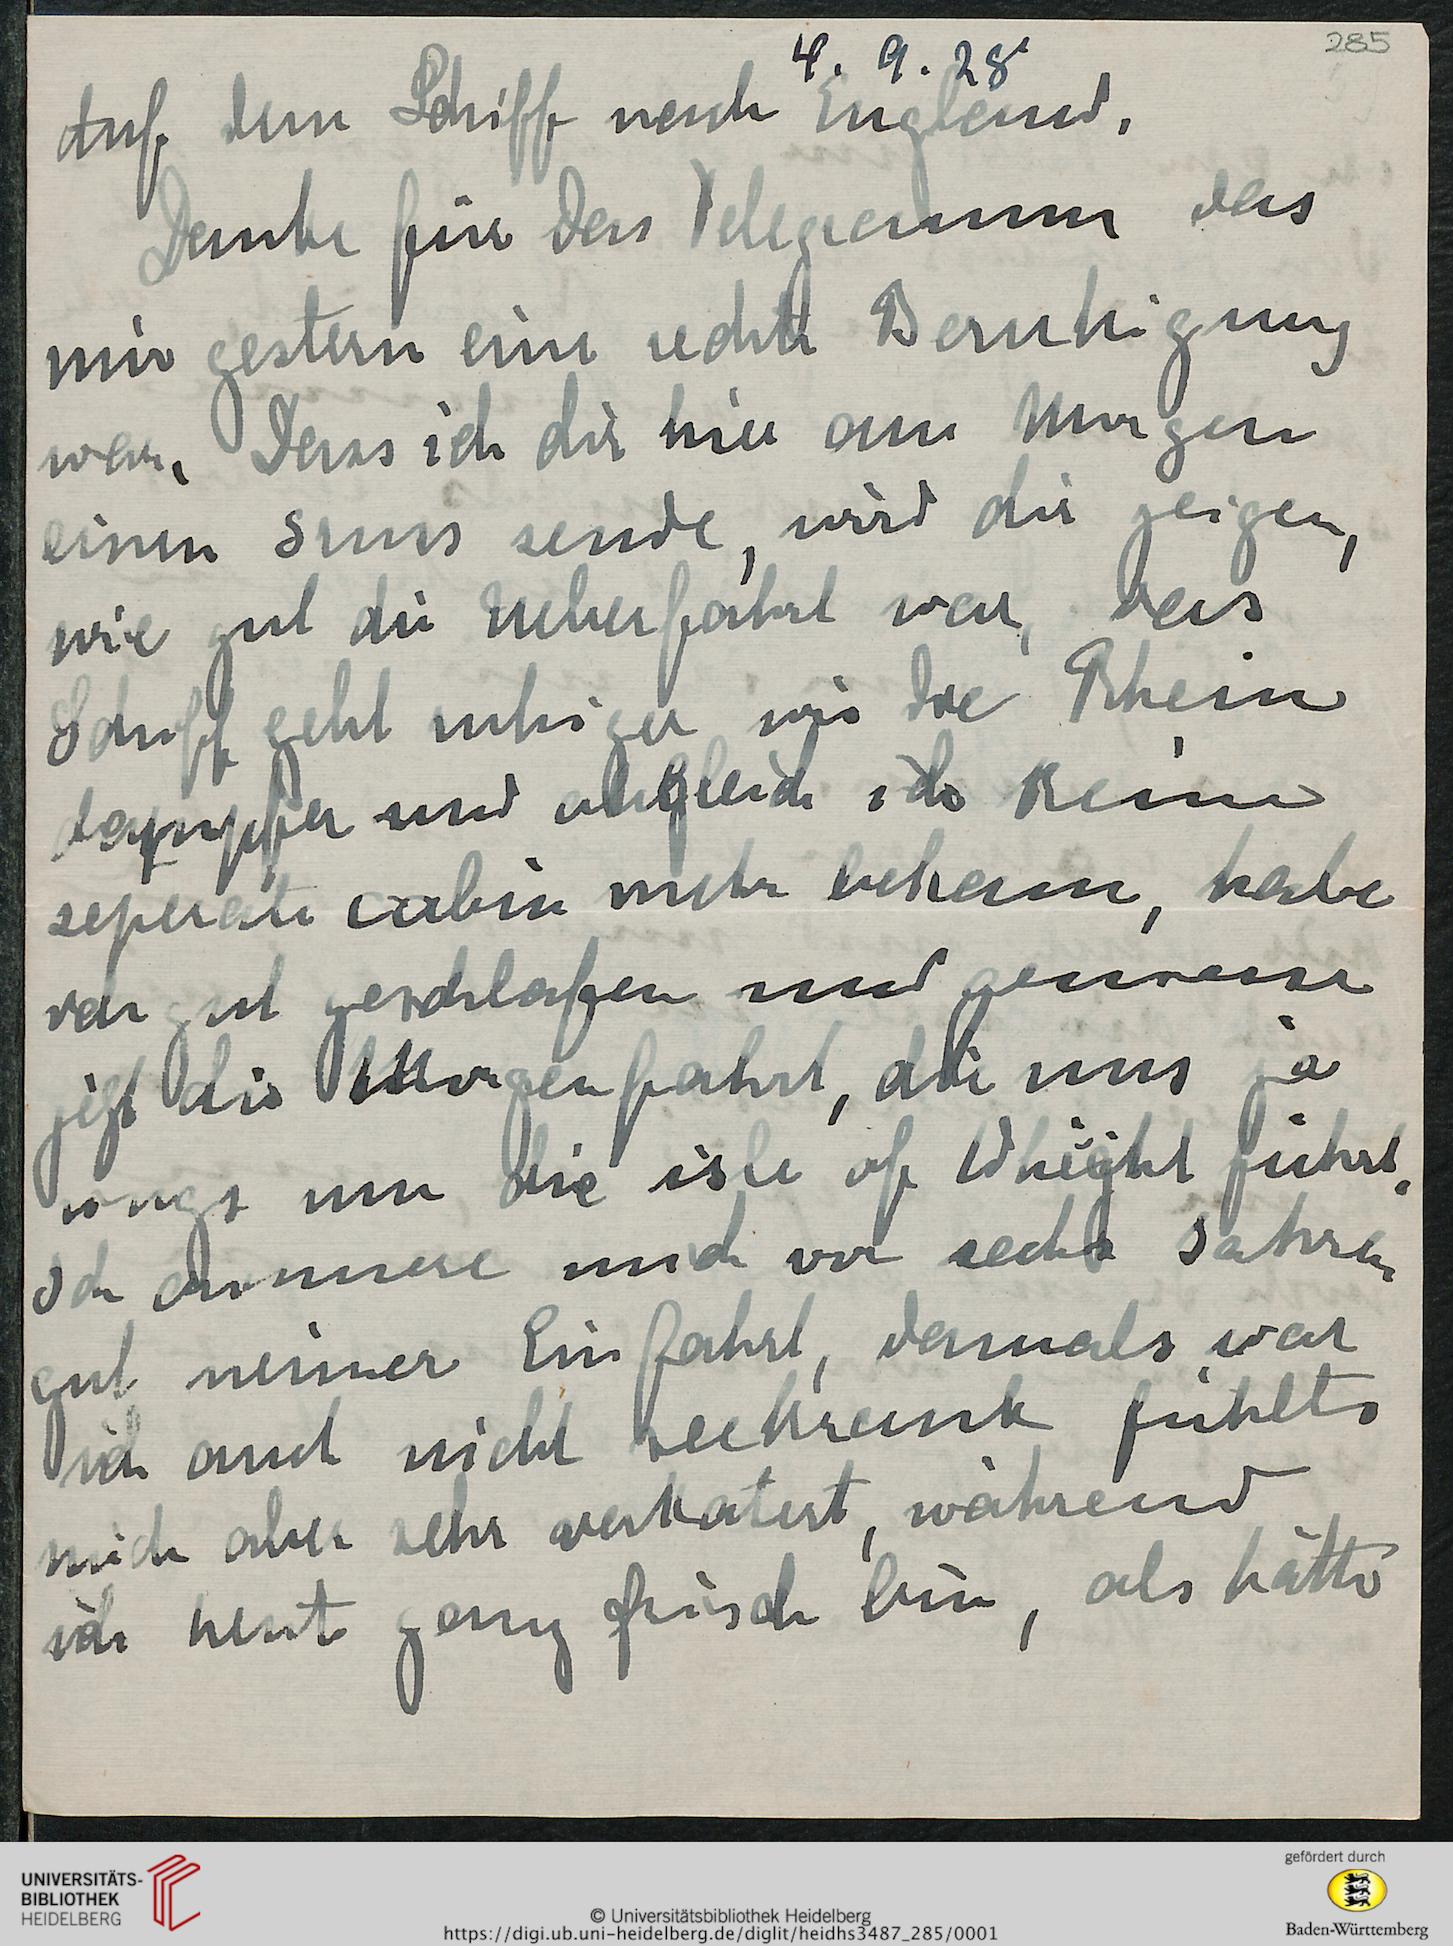 285
4. 9. 28
Auf dem Schiff nach England.
Danke für das Telegramm das
mir gestern eine rechte Beruhigung
war. Dass ich dir hier am Morgen
einen Gruss sende, wird dir zeigen,
wie gut die Ueberfahrt war, das
Schiff geht ruhiger wie die Rhein
dampfer und obgleich ich keine
seperate cabin mehr bekam, habe
gut geschlafen und geniesse
jetzt die Morgenfahrt, die uns ja
rings um die isle of Whight führt.
Ich erinnere mich vor sechs Jahren
gut meiner Einfahrt, damals war
ich auch nicht seekrank fühlte
mich aber sehr verkatert, während
ich heute ganz frisch bin, als hätte
UNIVERSITÄTS-
BIBLIOTHEK
HEIDELBERG
© Universitätsbibliothek Heidelberg
https://digi.ub.uni-heidelberg.de/diglit/heidhs3487_285/0001
gefördert durch
Baden-Württemberg